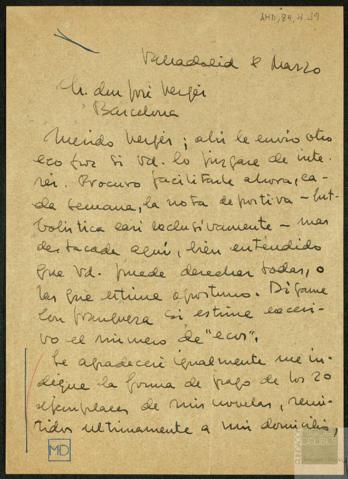 AMD, 89, 4.19
Valladolid 8 Marzo
Sr. don José Vergés
Barcelona
Querido Vergés; ahí le envío otro
eco por si Vd. lo juzgare de inte-
rés. Procuro facilitarle ahora, ca-
da semana, la nota deportiva – fut-
bolística casi exclusivamente – mas
destacada aquí, bien entendido
que Vd. puede desechar todas, o
las que estime oportuno. Dígame
con franqueza si estima excesi-
vo el número de "ecos".
Le agradeceré igualmente me in-
dique la forma de pago de los 20
ejemplares de mis novelas, remi-
tidos ultimamente a mi domicilio
MD